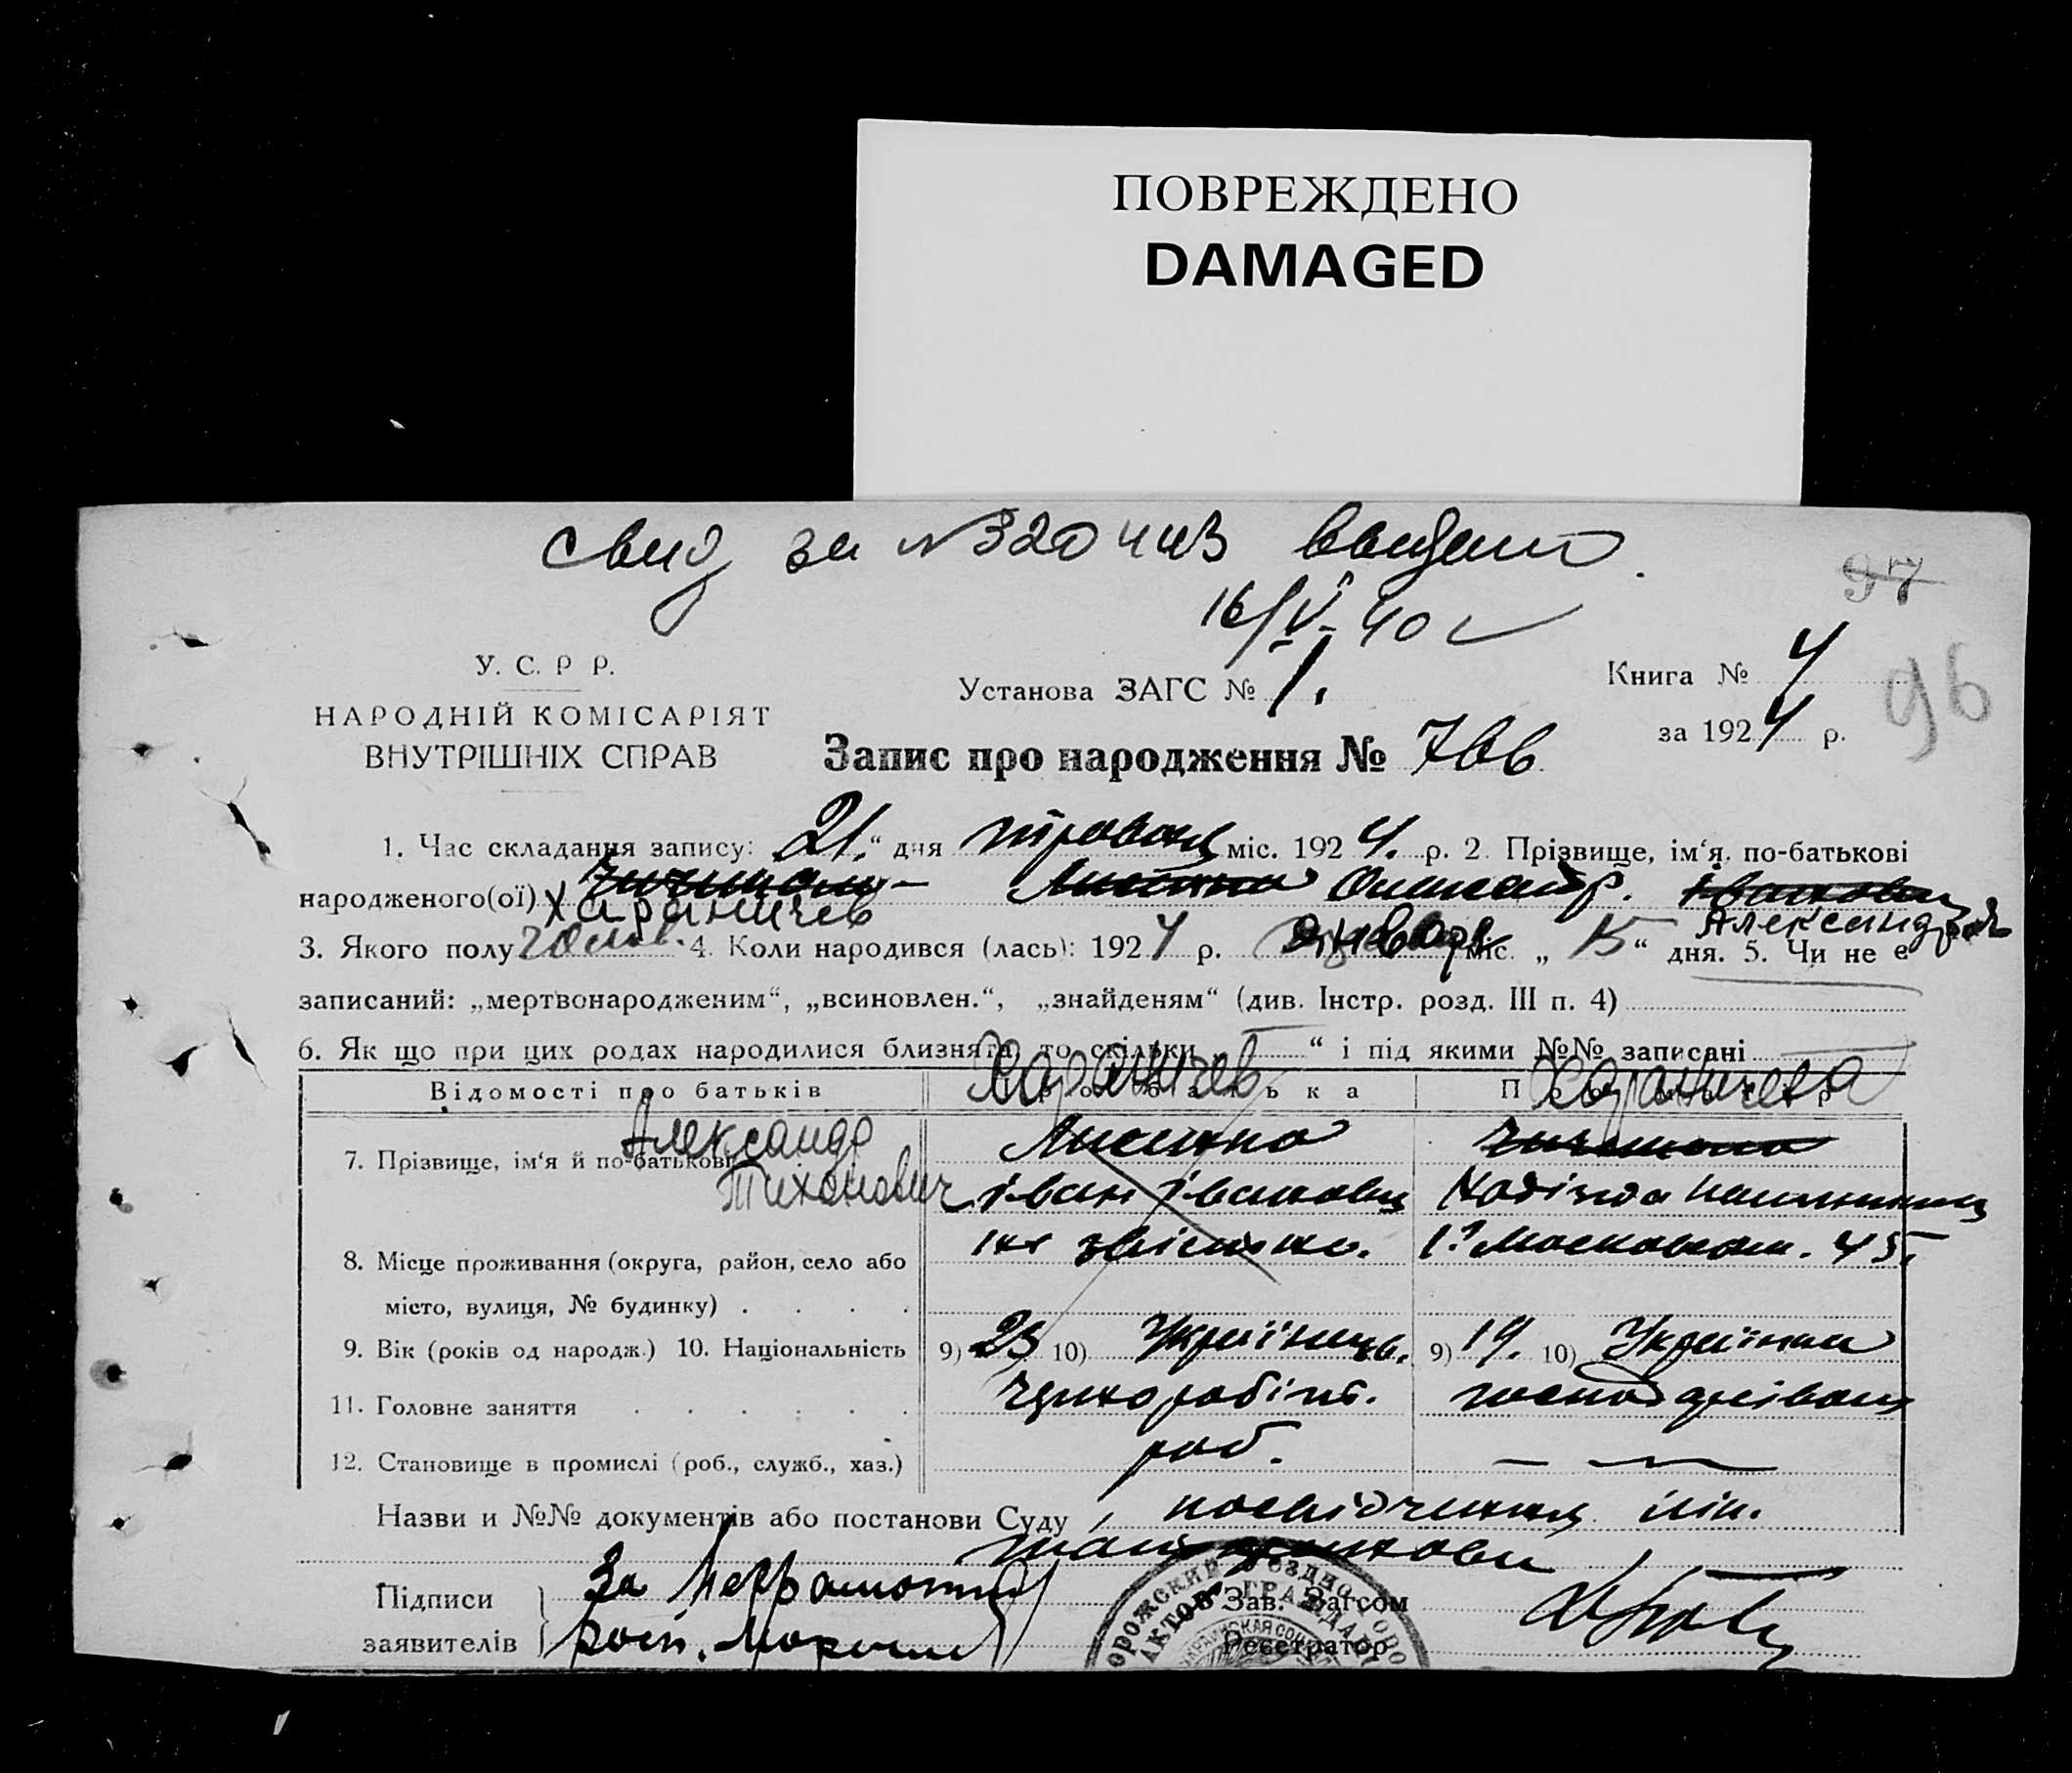 ПОВРЕЖДЕНО
DAMAGED
свид за №320443 введено
16/V-40
97
96
У. С. Р Р.
НАРОДНІЙ КОМІСАРІЯТ
ВНУТРІШНІХ СПРАВ
Установа ЗАГС № 1.
Книга № 4
за 1924 р.
Запис про народження №
1. Час складання запису: 21 “ дня травня міс. 1924. р. 2. Прізвище, ім‘я, по-батькові
народженого(ої) Олександр. Іванович
Хараничев Александров
3. Якого полу чолов. 4. Коли народився (лась): 1924 р. января міс. „ 15 “ дня. 5. Чи не є
записаний: „мертвонародженим“, „всиновлен.“, „знайденям“ (див. Інстр. розд. III п. 4)
6. Як що при цих родах народилися близнята, то скільки “ і під якими №№ записані
Хараничев Хараничева
Відомості про батьків
7. Прізвище, ім‘я й по-батькові
Александр
Тихонович
Іван Іванович Надіжда
8. Місце проживання (округа, район, село або
місто, вулиця, № будинку)
не звісно. Московськ. 45
9. Вік (років од народж.) 10. Національність 9) 23 10) Українець. 9) 19. 10) Українка
11. Головне заняття чорноробіт.
12. Становище в промислі (роб., служб., хаз.) роб.
Назви и №№ документів або постанови Суду посвідчення
Підписи
заявителів
За неграмотн
росп.
Зав. Загсом
Реєстратор